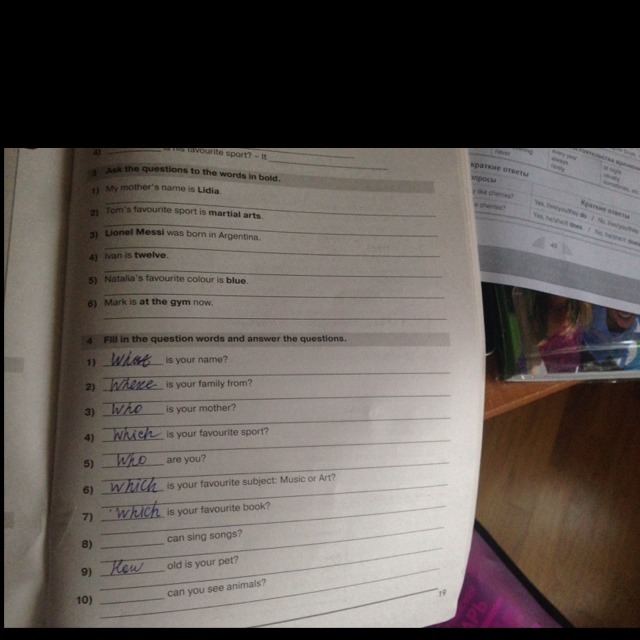 4) is his favourite sport? – It
3 Ask the questions to the words in bold.
1) My mother's name is Lidia.
2) Tom's favourite sport is martial arts.
3) Lionel Messi was born in Argentina.
4) Ivan is twelve.
5) Natalia's favourite colour is blue.
6) Mark is at the gym now.
4 Fill in the question words and answer the questions.
1) What is your name?
2) Where is your family from?
3) Who is your mother?
4) Which is your favourite sport?
5) Who are you?
6) which is your favourite subject: Music or Art?
7) which is your favourite book?
8) can sing songs?
9) How old is your pet?
10) can you see animals?
19
краткие ответы
Краткие ответы